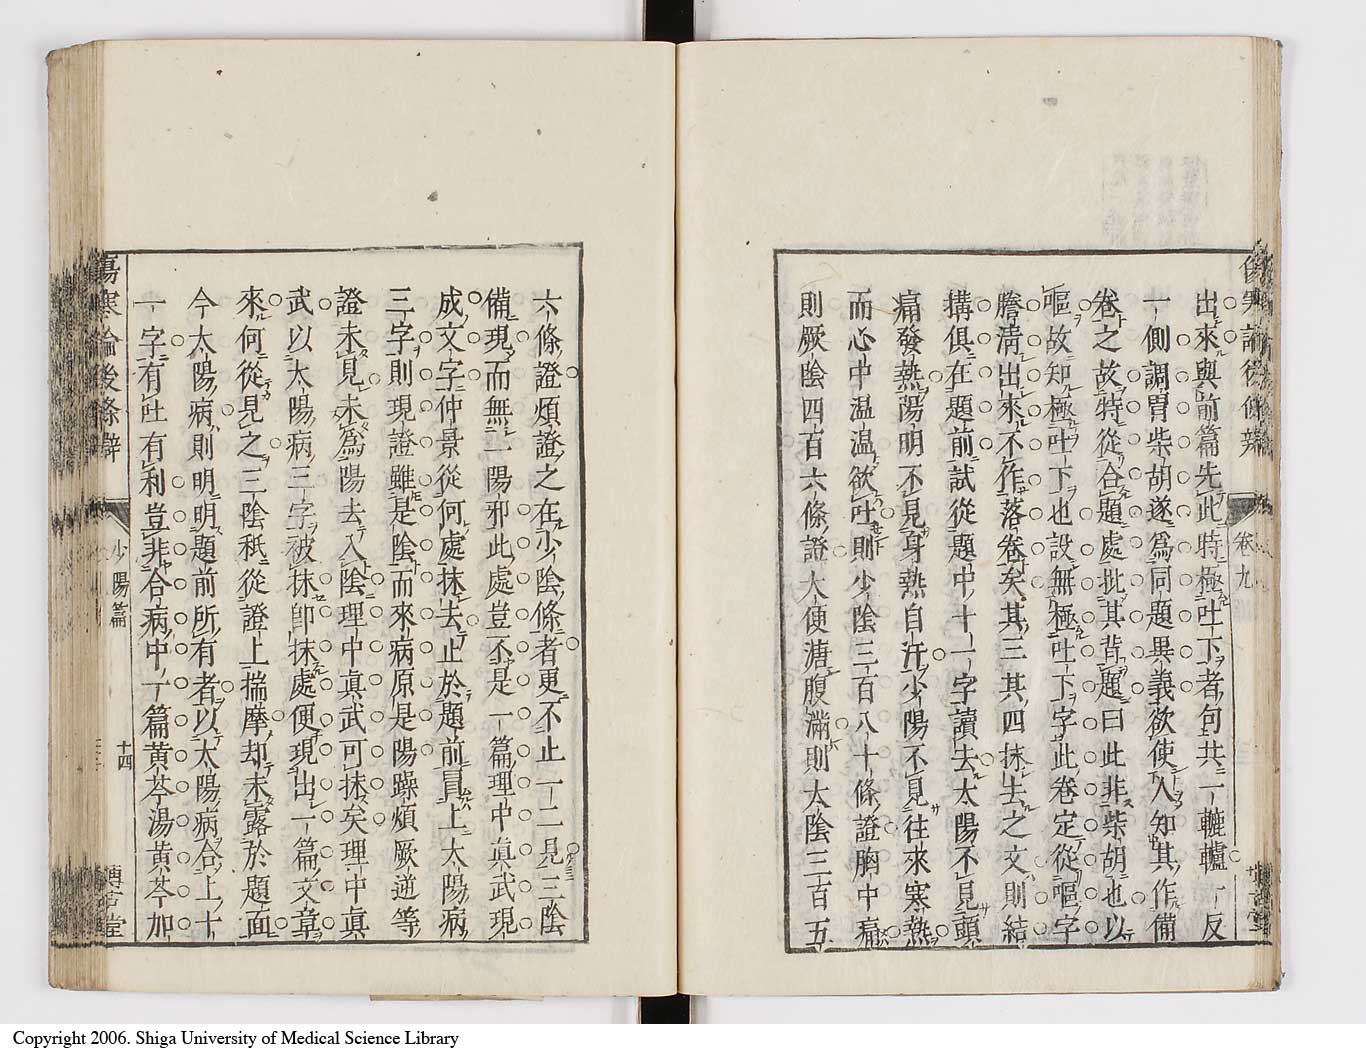 出來與前篇先此特極吐下者句共一轆轤一反
一側調胃柴胡遂爲同題異義欲使人知其作備
卷之故特從合題處批其背題曰此非柴胡也以
嘔故知極吐下也設無極吐下字此卷定從嘔字
膽清出來不作落卷矣其三其四抹去之文則結
搆俱在題前試從題中十一字讀去太陽不見頭
痛發熱陽明不見身熱自汗少陽不見往來寒熱
而心中温温欲吐則少陰三百八十條證胸中痛
則厥陰四百六條證大便溏腹滿則太陰三百五
卷九
六條證煩證之在少陰條者更不止一二見三陰
備現而無一陽邪此處豈不是一篇理中真武現
成文字仲景從何處抹去止於題前員上太陽病
三字則現證雖是陰而來病原是陽躁煩厥逆等
證未見未爲陽去入陰理中真武可抹矣理中真
武以太陽病三字被抹卽抹處便現出一篇文章
來何從見之三陰秖從證上揣摩却未露於題面
今太陽病則明明題前所有者以太陽病合上十
一字有吐有利豈非合病中一篇黃芩湯黃芩加
傷寒論後條辯
少陽篇
十四
Copyright 2006. Shiga University of Medical Science Library